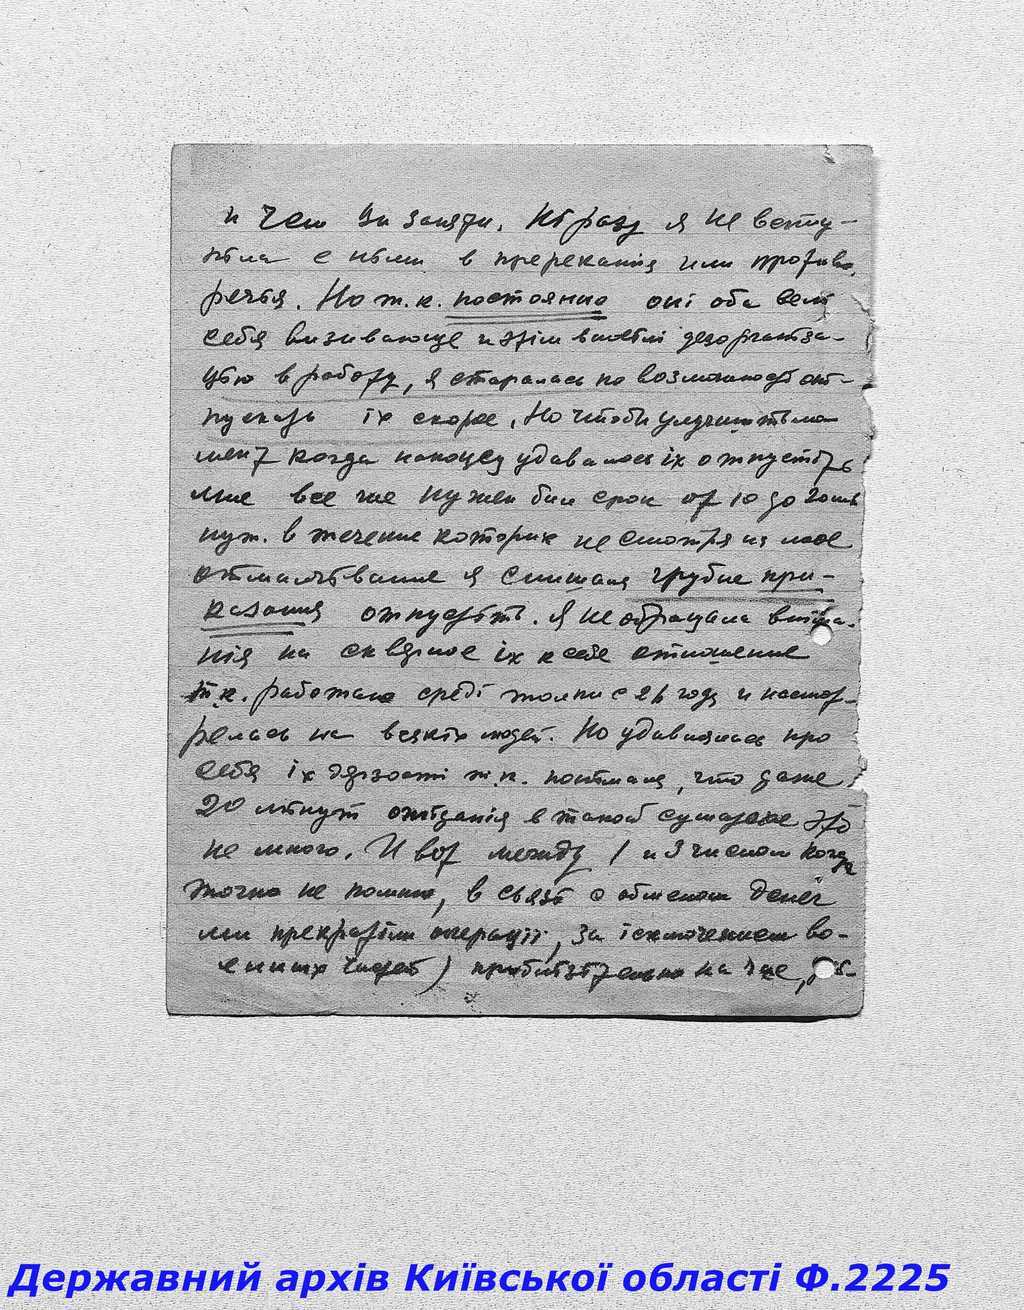 и чем ви заняти. Ні разу я не всту-
піла с німи в пререканія или противо
речія. Но т.к. постоянно оні оба велі
себя визивающе и этім вносілі дезорганіза-
цію в работу, я старалась по возможності от-
пускать іх скорее. Но чтоби улучшить мо-
мент когда наконец удавалось іх отпустіть
мне все же нужен бил срок от 10 до 20 ми
нут. в течение которих не смотря на мое
отмалчивание я слишала грубие при-
казания отпустіть. Я не обращала вніма-
нія на скверное іх к себе отношение
т.к. работаю среді толпи с 26 года и насмот-
релась на всякіх людей. Но удивлялась про
себя іх дерзості т.к. понімала, что даже
20 мінут ожіданія в такой сутолоке это
не много. И вот между 1 и 3 числом когда
точно не помню, в связі с обменом денег
ми прекратілі операції, за ісключением во-
енних частей) приблизітельно на
Державний архів Київської області Ф.2225